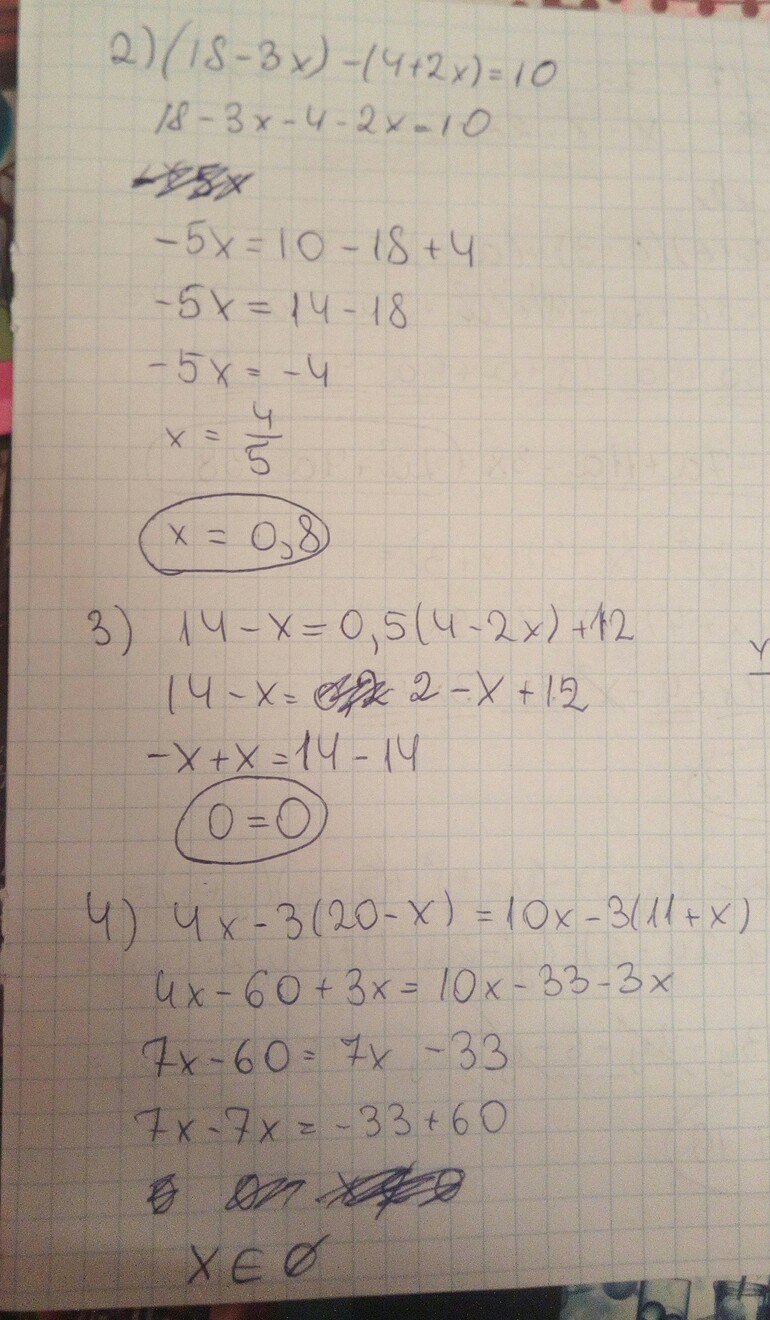 2) (18-3x)-(4+2x)=10
18-3x-4-2x=10
-5x=10-18+4
-5x=14-18
-5x=-4
x=4/5
x=0,8
3) 14-x=0,5(4-2x)+12
14-x= 2-x+12
-x+x=14-14
0=0
4) 4x-3(20-x)=10x-3(11+x)
4x-60+3x=10x-33-3x
7x-60=7x -33
7x-7x=-33+60
x∈∅